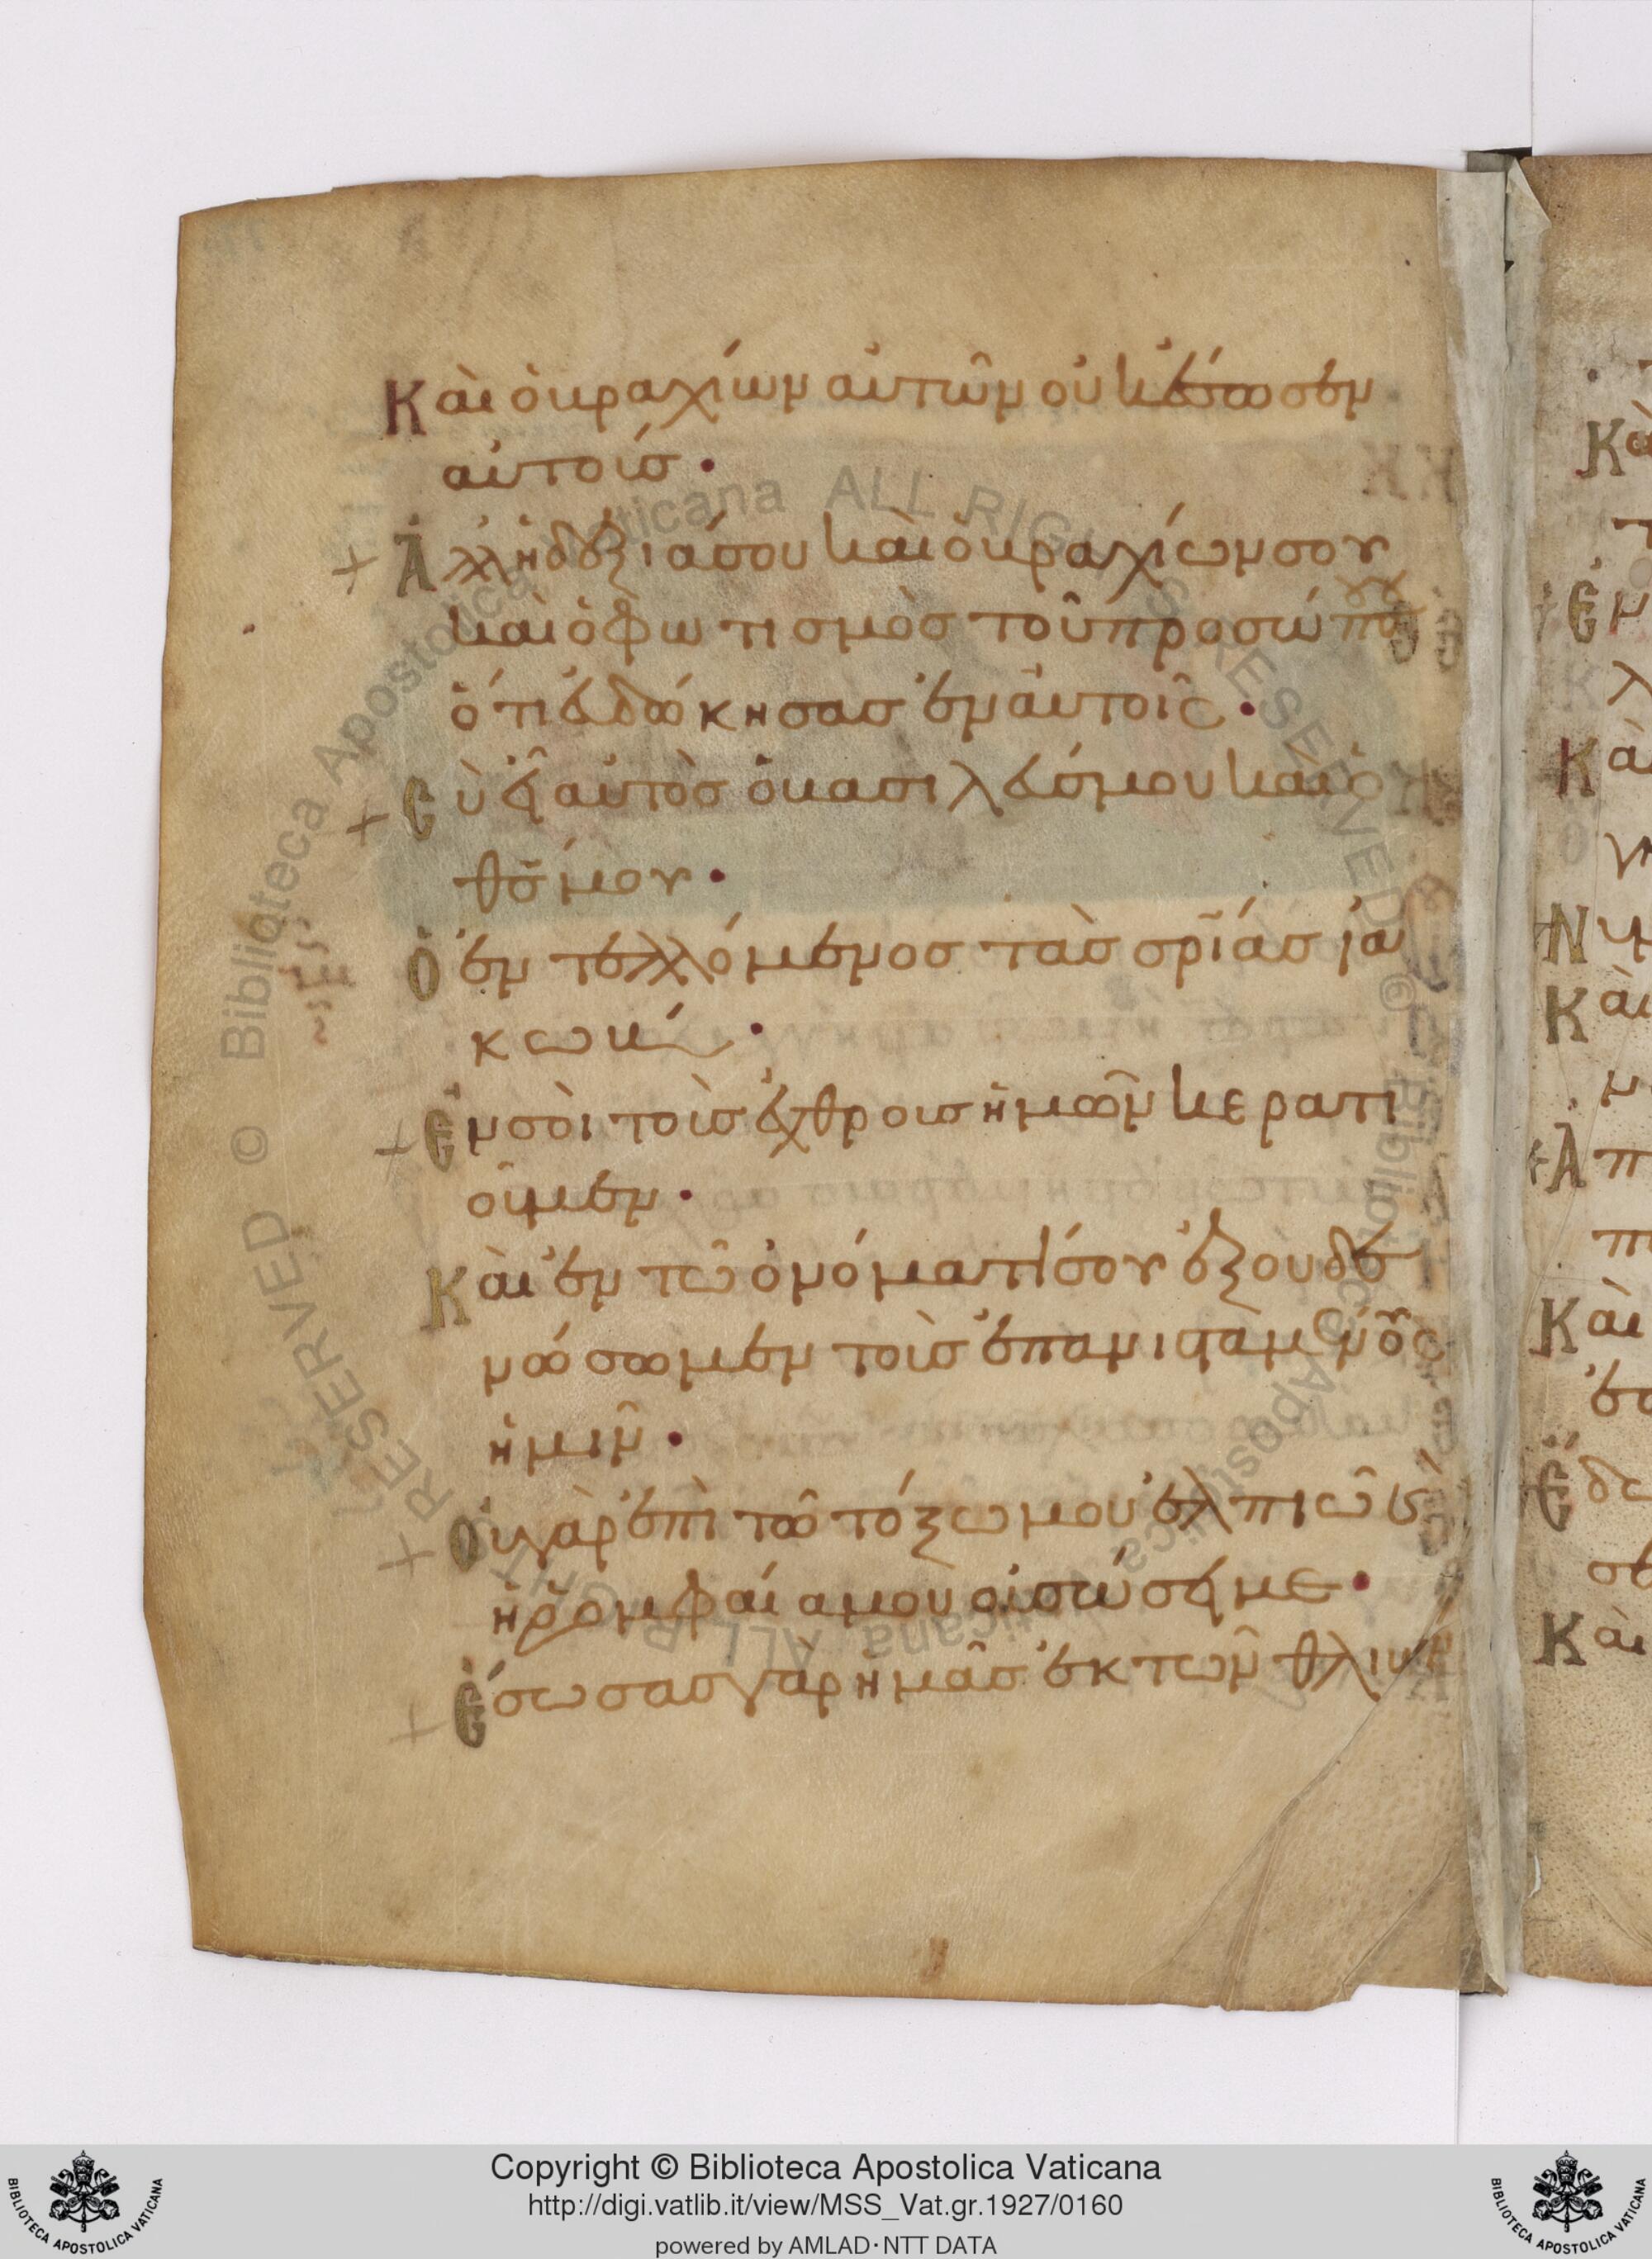 Καὶ ὁ βραχίων αὐτῶν οὐκ ἔσωσεν
αὐτοίσ·
Ἀλλ ἡ δεξιά σου καὶ ὁ βραχίων σου
καὶ ὁ φωτισμὸσ τοῦ προσώπου σου
ὅτι εὐδόκησασ ἐν αὐτοῖς·
Σὺ εἶ αὐτὸσ ὁ βασιλεύσ μου καὶ ὁ
θσ̅ μου·
Ὁ ἐντελλόμενοσ τὰσ σρι̅ασ ϊα
κωβ·
Ἐν σοὶ τοὶσ ἐχθροισ ἡμῶν κερατι
οῦμεν·
Καὶ ἐν τῶ ὀνόματί σου ἐξουδε
νώσωμεν τοὶσ ἐπανιστανμένους
ἡμῖν·
Οὐ γὰρ ἐπὶ τῶ τόξω μου ἐλπιῶ καὶ
ἡ ρομφαία μου οὐ σώσει με·
Ἔσωσασ γὰρ ἡμᾶσ ἐκ τῶν θλιβ
Copyright © Biblioteca Apostolica Vaticana
http://digi.vatlib.it/view/MSS_Vat.gr.1927/0160
powered by AMLAD·NTT DATA
BIBLIOTECA APOSTOLICA VATICANA
BIBLIOTECA APOSTOLICA VATICANA